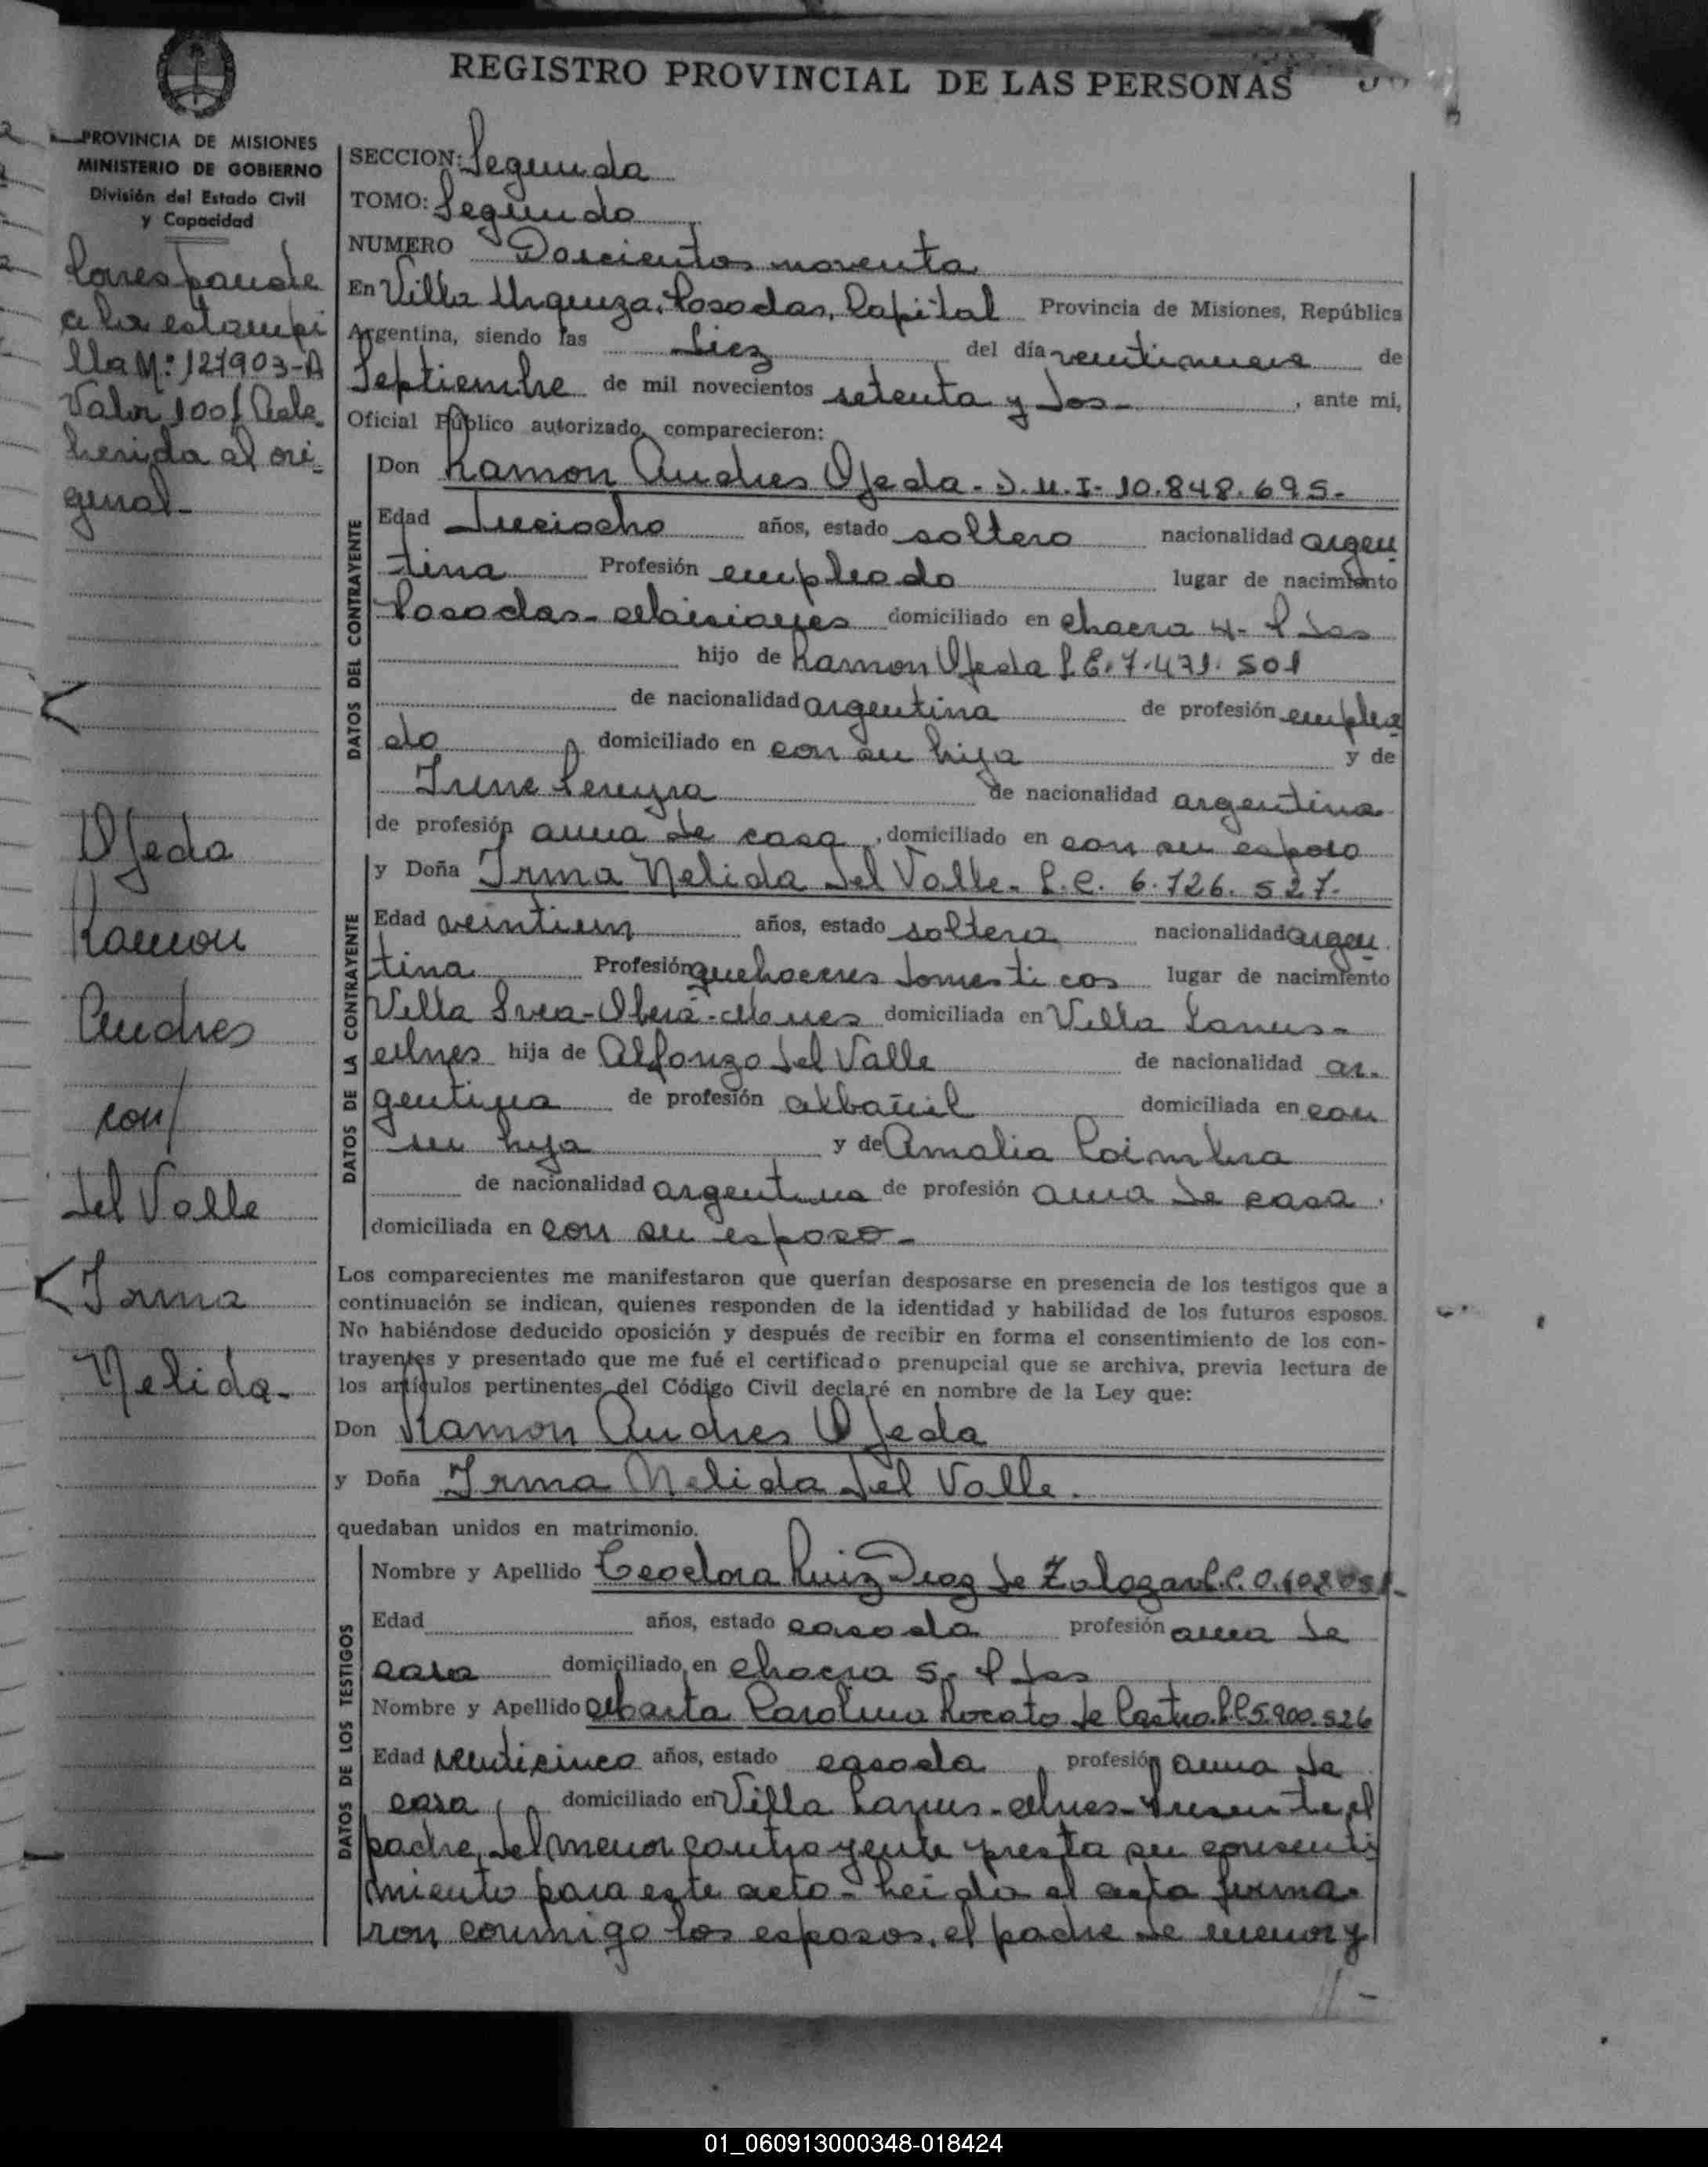 REGISTRO PROVINCIAL DE LAS PERSONAS
PROVINCIA DE MISIONES
MINISTERIO DE GOBIERNO
División del Estado Civil
y Capacidad
Corresponde
a la estampi
lla Nº: 127903-A
Valor 100 \ Adhe
herida al ori-
ginal-
Ojeda
Ramon
Andres
con/
del Valle
Irma
Nelida-
SECCION: Segunda
TOMO: Segundo
NUMERO Doscientos noventa
En Villa Urquiza, Posadas, Capital Provincia de Misiones, República
Argentina, siendo las diez del día veintinueve de
Septiembre de mil novecientos setenta y dos- , ante mi,
Oficial Público autorizado, comparecieron:
DATOS DEL CONTRAYENTE
Don Ramon Andres Ojeda- D.N.I- 10.848.695-
Edad dieciocho años, estado soltero nacionalidad argen
tina Profesión empleado lugar de nacimiento
Posadas- Misiones domiciliado en chacra 4- Pdas
hijo de Ramon Ojeda L.E. 7.471.501
de nacionalidad argentina de profesión emplea
do domiciliado en con su hijo y de
Irene Pereyra de nacionalidad argentina
de profesión ama de casa , domiciliado en con su esposo
DATOS DE LA CONTRAYENTE
y Doña Irma Nelida del Valle- L.C. 6.726.527-
Edad veintiun años, estado soltera nacionalidad argen
tina Profesión quehaceres domesticos lugar de nacimiento
Villa Svea-Oberá-Mnes domiciliada en Villa Lanus-
Mnes hija de Alfonzo del Valle de nacionalidad ar-
gentina de profesión albañil domiciliada en con
su hija y de Amalia Coimbra
de nacionalidad argentina de profesión ama de casa
domiciliada en con su esposo-
Los comparecientes me manifestaron que querían desposarse en presencia de los testigos que a
continuación se indican, quienes responden de la identidad y habilidad de los futuros esposos.
No habiéndose deducido oposición y después de recibir en forma el consentimiento de los con-
trayentes y presentado que me fué el certificado prenupcial que se archiva, previa lectura de
los artículos pertinentes del Código Civil declaré en nombre de la Ley que:
Don Ramon Andres Ojeda
y Doña Irma Nelida del Valle.
quedaban unidos en matrimonio.
DATOS DE LOS TESTIGOS
Nombre y Apellido Teodora Ruiz Diaz de Zalazar L.C.
Edad años, estado casada profesión ama de
casa domiciliado en chacra 5- Pdas
Nombre y Apellido Marta Carolina de Castro. L.C 5.900.526
Edad veinticinco años, estado casada profesión ama de
casa domiciliado en Villa Lanus- Mnes- Presente el
padre del menor contrayente presta su consenti
miento para este acto- Leida el acta firma-
ron conmigo los esposos, el padre de menor y
//-
01_060913000348-018424